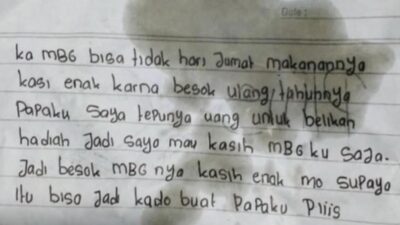 Date :
ka MBG bisa tidak hari Jumat makanannya
kasi enak karna besok ulang tahunnya
Papaku saya tepunya uang untuk belikan
hadiah Jadi saya mau kasih MBG ku saja.
Jadi besok MBG nya kasih enak mo supaya
Itu bisa Jadi kado buat PaPaku Pliis